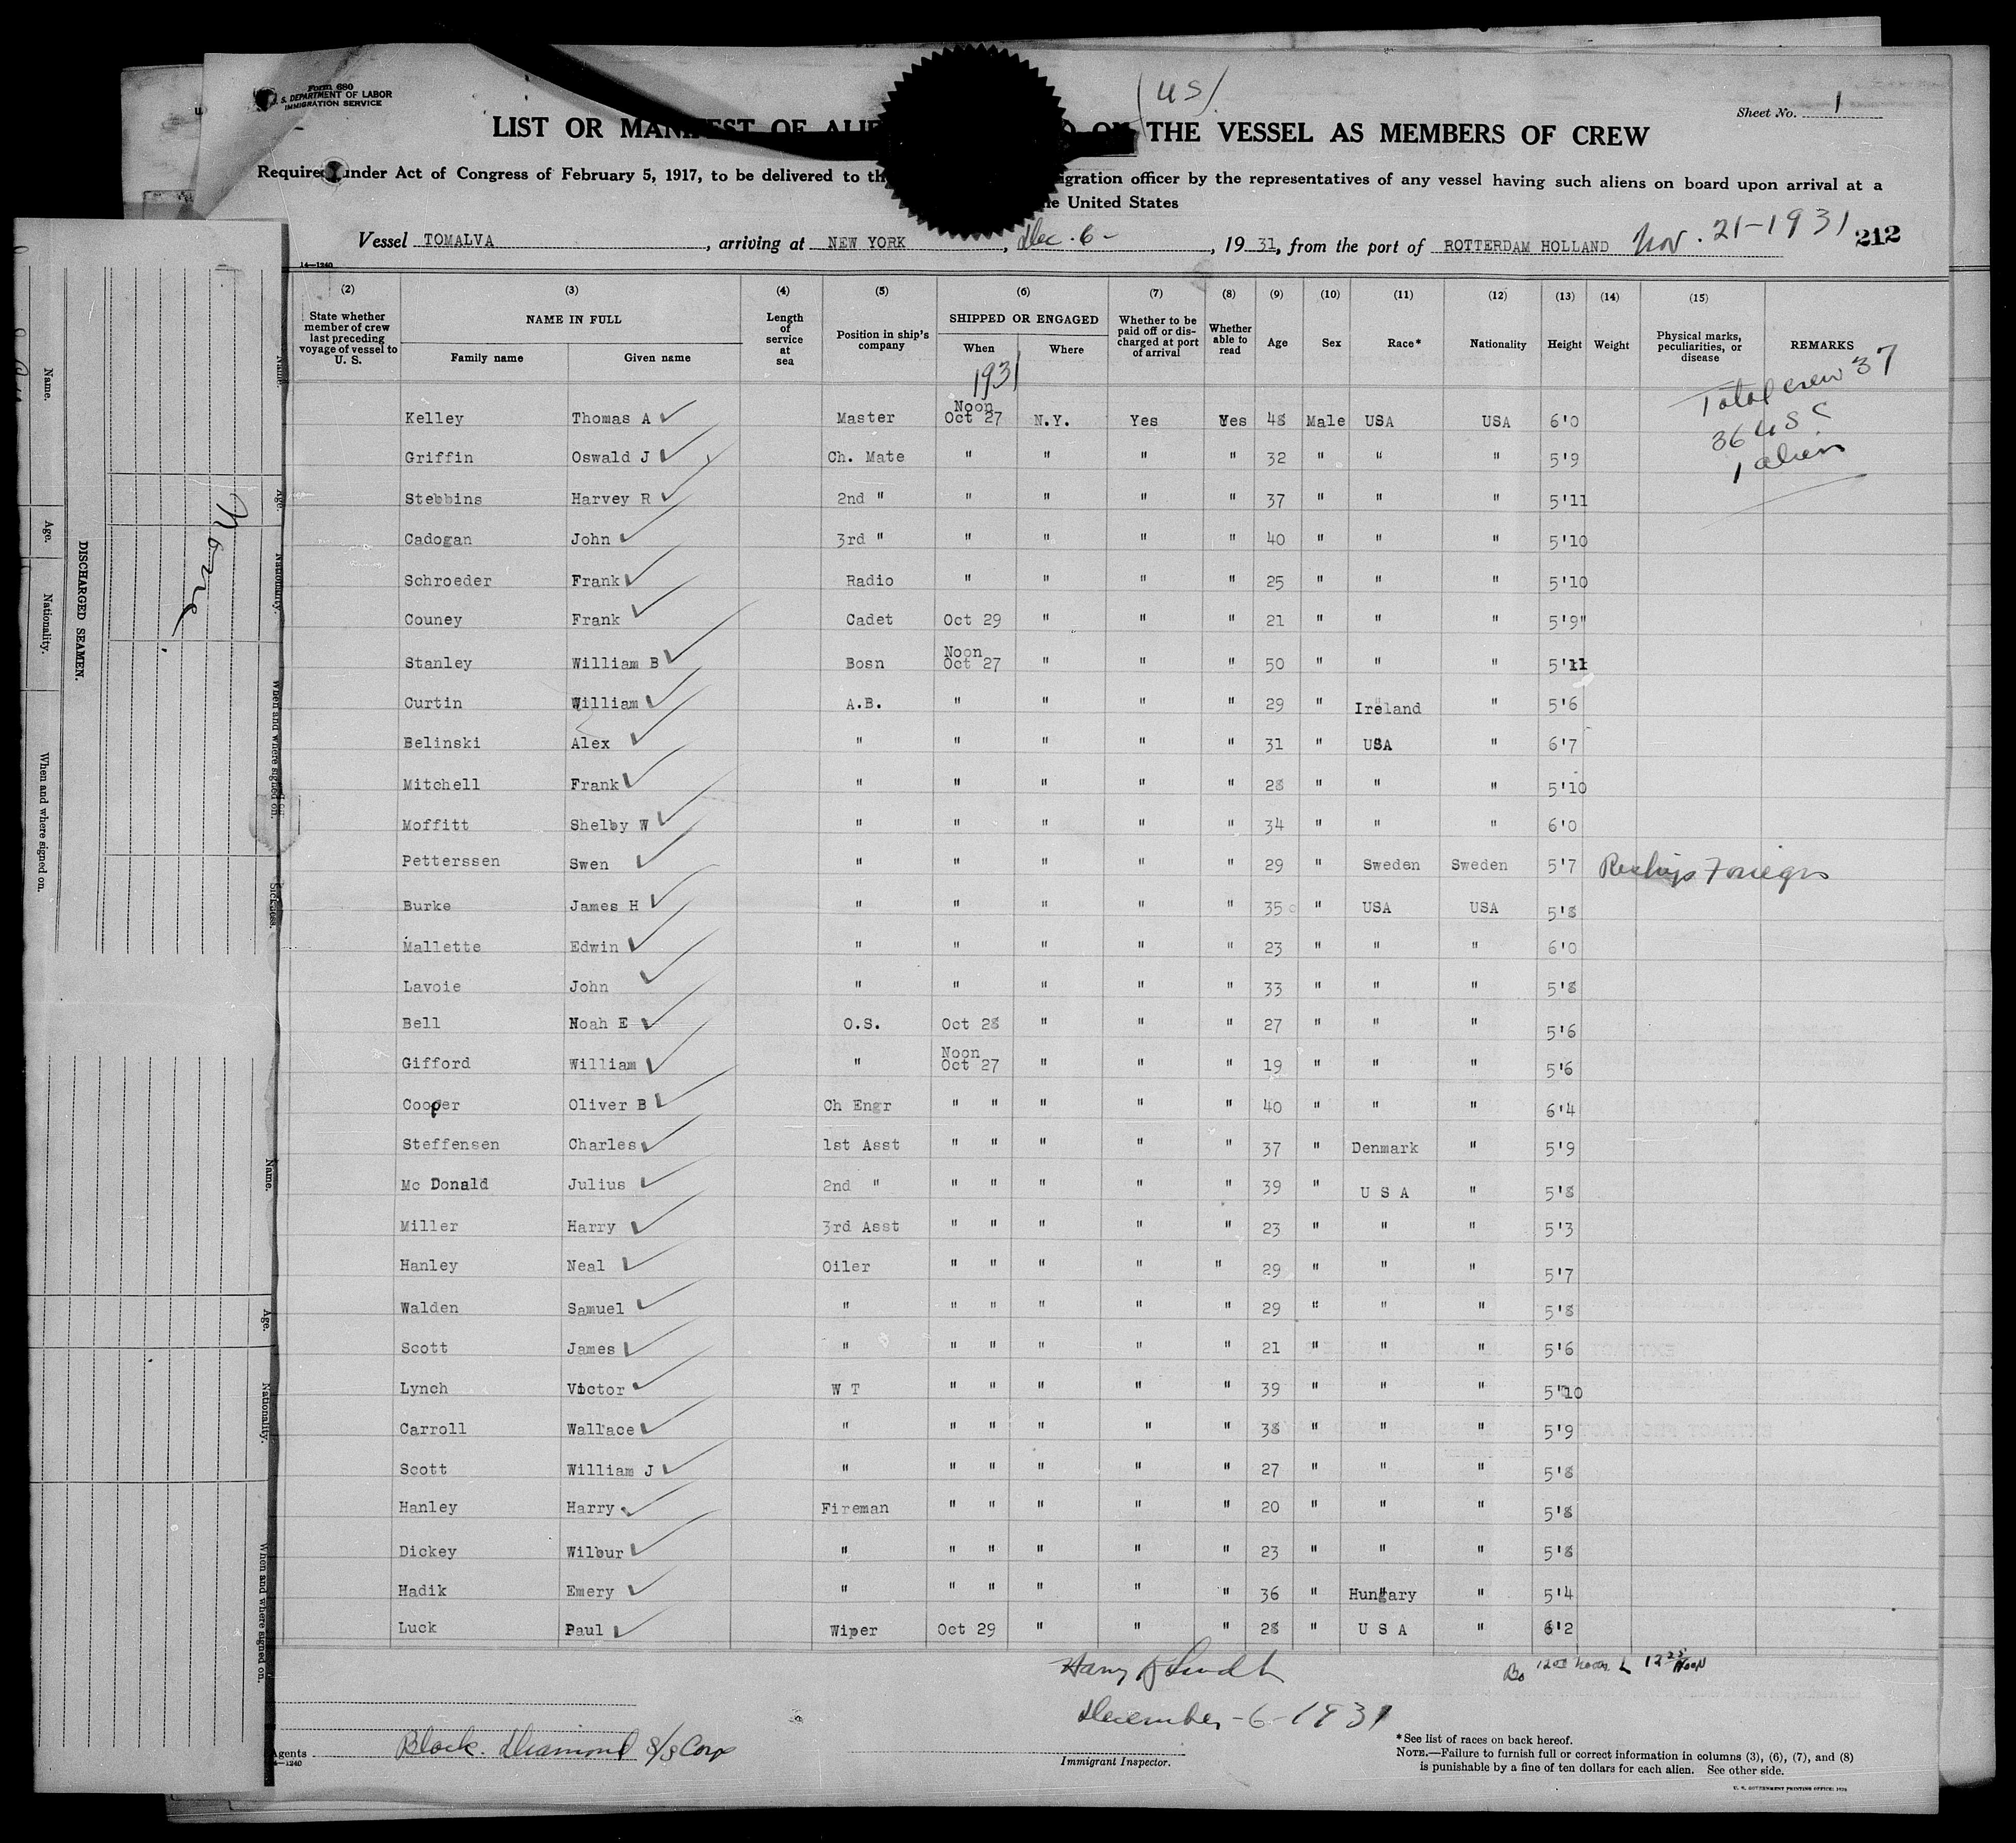 Form 680
U. S. DEPARTMENT OF LABOR
IMMIGRATION SERVICE
(US)
Sheet No. 1
LIST OR MANIFEST OF ALIE ON THE VESSEL AS MEMBERS OF CREW
Required under Act of Congress of February 5, 1917, to be delivered to th igration officer by the representatives of any vessel having such aliens on board upon arrival at a
he United States
Vessel TOMALVA, arriving at NEW YORK, Dec. 6-, 1931, from the port of ROTTERDAM HOLLAND Nov. 21-1931 212
14-1240
(2) (3) (4) (5) (6) (7) (8) (9) (10) (11) (12) (13) (14) (15)
State whether member of crew last preceding voyage of vessel to U. S. NAME IN FULL Family name Given name Length of service at sea Position in ship's company SHIPPED OR ENGAGED When Where Whether to be paid off or discharged at port of arrival Whether able to read Age Sex Race* Nationality Height Weight Physical marks, peculiarities, or disease REMARKS
1931
Total crew 37
36 USC
1 alien
Kelley Thomas A Master Noon Oct 27 N.Y. Yes Yes 48 Male USA USA 6'0
Griffin Oswald J Ch. Mate " " " " 32 " " " 5'9
Stebbins Harvey R 2nd " " " " " 37 " " " 5'11
Cadogan John 3rd " " " " " 40 " " " 5'10
Schroeder Frank Radio " " " " 25 " " " 5'10
Couney Frank Cadet Oct 29 " " " 21 " " " 5'9"
Stanley William B Bosn Noon Oct 27 " " " 50 " " " 5'11
Curtin William A.B. " " " " 29 " Ireland " 5'6
Belinski Alex " " " " " 31 " USA " 6'7
Mitchell Frank " " " " " 28 " " " 5'10
Moffitt Shelby W " " " " " 34 " " " 6'0
Petterssen Swen " " " " " 29 " Sweden Sweden 5'7 Reships Foreign
Burke James H " " " " " 35 " USA USA 5'8
Mallette Edwin " " " " " 23 " " " 6'0
Lavoie John " " " " " 33 " " " 5'8
Bell Noah E O.S. Oct 28 " " " 27 " " " 5'6
Gifford William " Noon Oct 27 " " " 19 " " " 5'6
Cooper Oliver B Ch Engr " " " " " 40 " " " 6'4
Steffensen Charles 1st Asst " " " " " 37 " Denmark " 5'9
Mc Donald Julius 2nd " " " " " " 39 " U S A " 5'8
Miller Harry 3rd Asst " " " " " 23 " " " 5'3
Hanley Neal Oiler " " " " " 29 " " " 5'7
Walden Samuel " " " " " " 29 " " " 5'8
Scott James " " " " " " 21 " " " 5'6
Lynch Victor W T " " " " " 39 " " " 5'10
Carroll Wallace " " " " " " 38 " " " 5'9
Scott William J " " " " " " 27 " " " 5'8
Hanley Harry Fireman " " " " " 20 " " " 5'8
Dickey Wilbur " " " " " " 23 " " " 5'8
Hadik Emery " " " " " " 36 " Hungary " 5'4
Luck Paul Wiper Oct 29 " " " 28 " U S A " 6'2
Bo 1200 noon L 12 25 Noon
December-6-1931
Immigrant Inspector.
Agents Black Diamond S/S Corp
*See list of races on back hereof.
NOTE.—Failure to furnish full or correct information in columns (3), (6), (7), and (8)
is punishable by a fine of ten dollars for each alien. See other side.
U. S. GOVERNMENT PRINTING OFFICE: 1928
DISCHARGED SEAMEN.
Name. Age. Nationality. When and where signed on.
Name. Age. Nationality. When and where signed on. Sickness.
None
Name. Age. Nationality. When and where signed on.